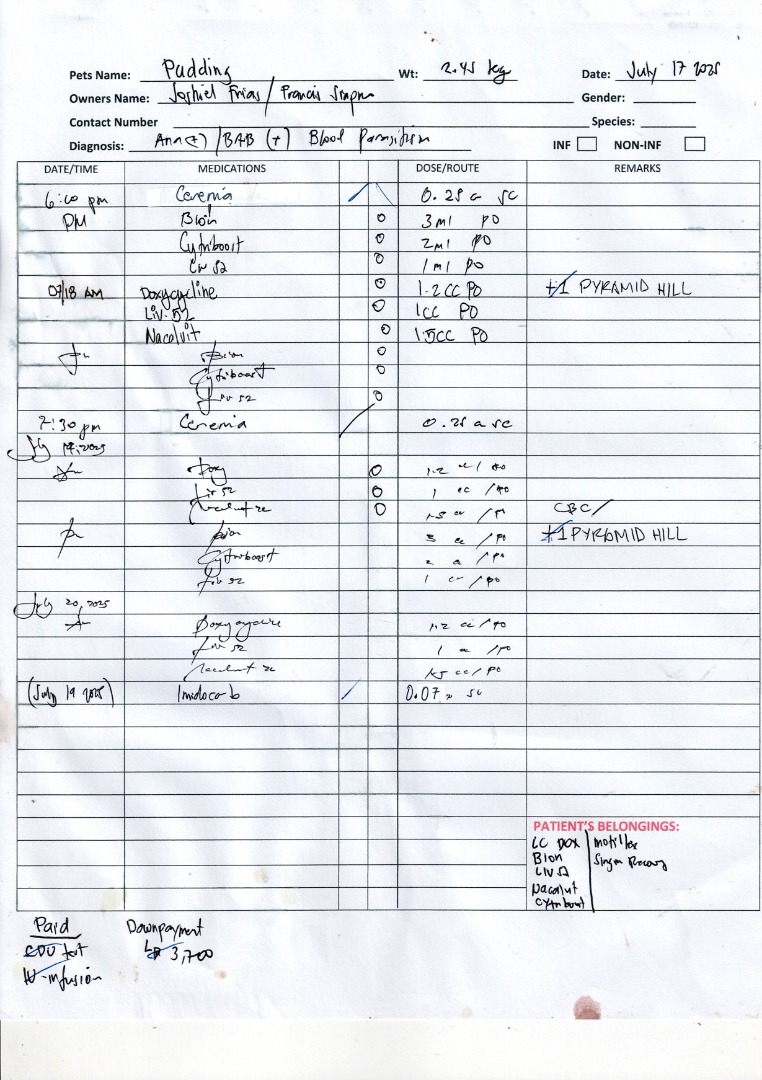 Pets Name: Pudding Wt: 2.45 kg Date: July 17 2025
Owners Name: Joshiel Frias / Francis Gender:
Contact Number Species:
Diagnosis: Ana(+) / BAB (+) Blood Parasitism INF NON-INF
DATE/TIME MEDICATIONS DOSE/ROUTE REMARKS
6:00 pm Cerenia 0.25 SC
PM Bion 3ml PO
Cytriboost 2ml PO
Liv 52 1ml PO
07/18 AM Doxycycline 1.2CC PO +1 PYRAMID HILL
LIV-52 1CC PO
Nacalvit 1.5CC PO
Bion
Cytriboost
Liv 52
7:30 pm Cerenia 0.25 SC
July 2025
Doxy 1.2 cc / PO
Liv 52 1 cc / PO
Nacalvit 1.5 cc / PO CBC/
Bion 3 cc / PO +1 PYRAMID HILL
Cytriboost cc / PO
Liv 52 1 cc / PO
July 20, 2025
Doxycycline 1.2 cc / PO
Liv 52 1 cc / PO
Nacalvit 1.5 cc / PO
(July 19 2025) Imidocarb 0.07 SC
PATIENT'S BELONGINGS:
LC DOX
Bion
LIV 52
Nacalvit
Cytriboost
Paid Downpayment
CDV test 3,700
IV-infusion